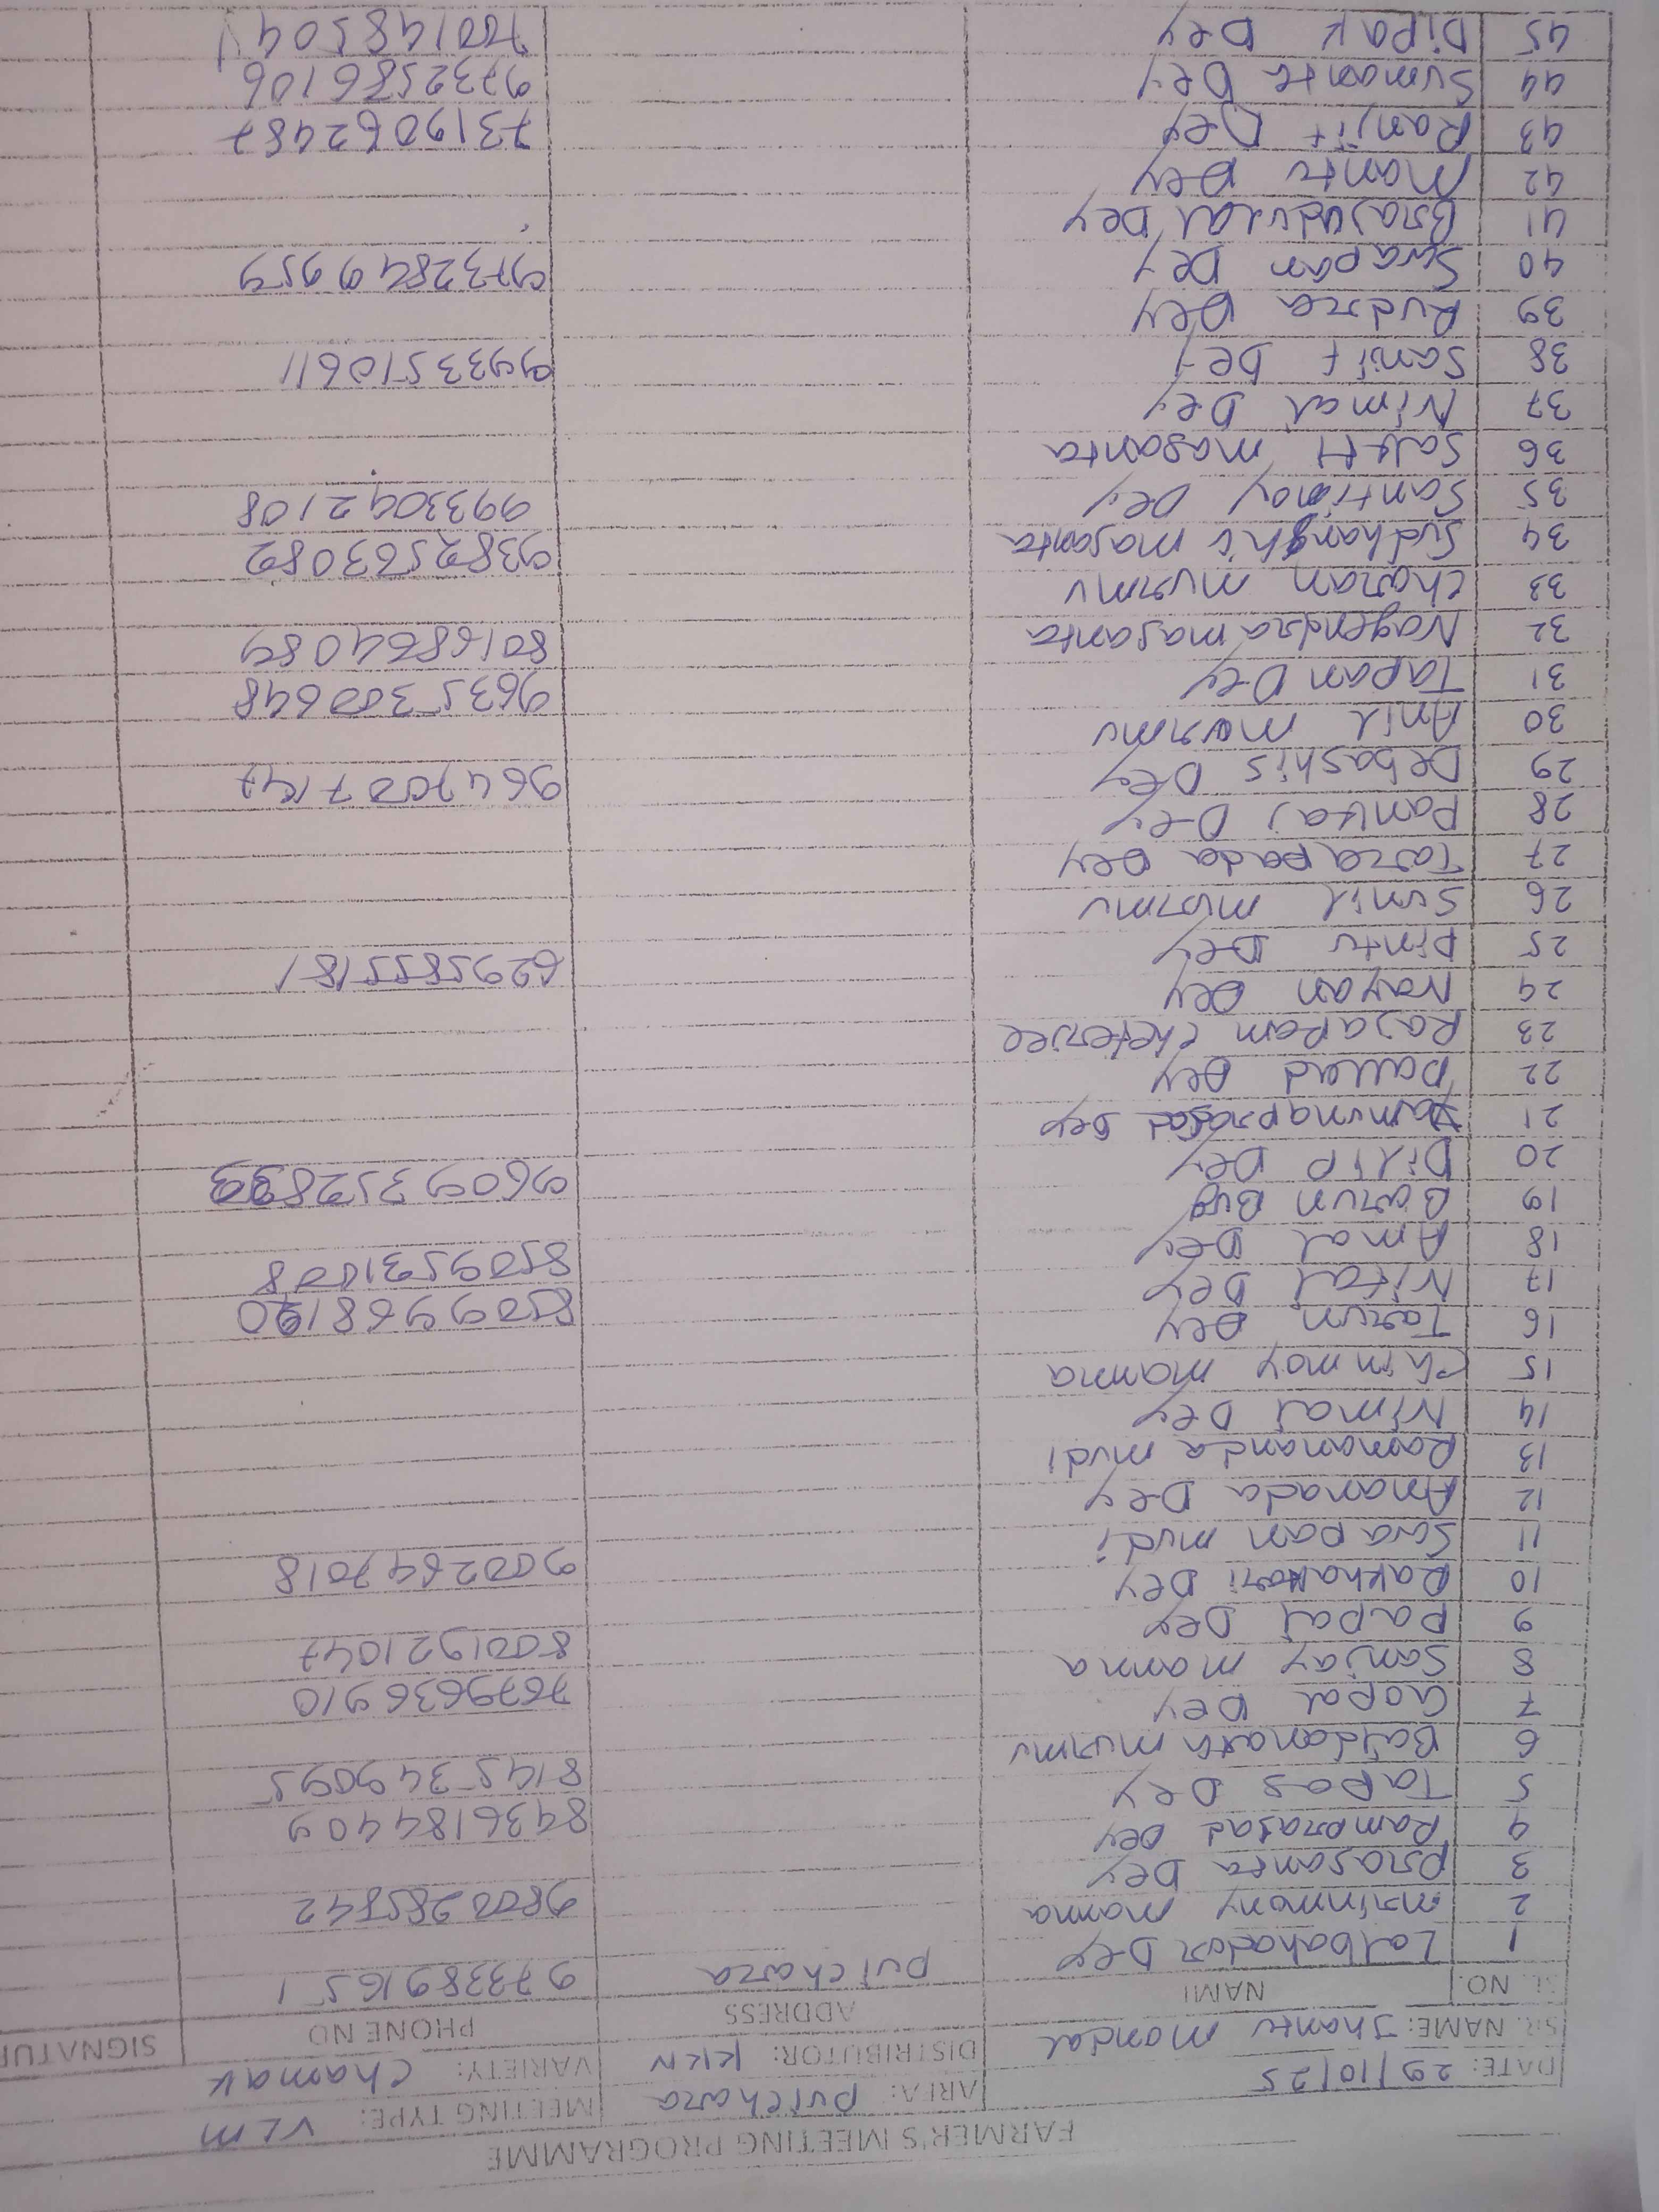 FARMER'S MEETING PROGRAMME
DATE: 29/10/25 AREA: Putchara MEETING TYPE: VLM
SR. NAME: Jhantu mondal DISTRIBUTOR: KKN VARIETY: Chamak
SL. NO. NAME ADDRESS PHONE NO SIGNATUR
1 Lalbahadur Dey Putchara 9733891651
2 mrinmony manna 9800285842
3 Prasanta Dey
4 Ramprasad Dey 8436184409
5 Tapas Dey 8145349095
6 Baidanath murmu
7 Gopal Dey 7679636910
8 Sanjay manna 8001921047
9 Papai Dey
10 Rakhahari Dey 9002647018
11 Swapan mudi
12 Annada Dey
13 Ramananda mudi
14 Nimai Dey
15 Chinmoy manna
16 Tarun Dey 8509968190
17 Nitai Dey 8509531008
18 Amal Dey
19 Barun Bug 9609352893
20 Dilip Dey
21 Jamunaprasad Dey
22 Pallad Dey
23 Rajaram Cheterjee
24 Nayan Dey 6295855181
25 Pintu Dey
26 Sunil murmu
27 Tarapada Dey
28 Pankaj Dey
29 Debashis Dey 9647007147
30 Anil murmu
31 Tapan Dey 9635300648
32 Nagendra masanta 8016864089
33 Charan murmu
34 Sudhangshu masanta 9382563082
35 Santimoy Dey 9933042108
36 Sakti masanta
37 Nimai Dey
38 Sanjit Dey 9933510611
39 Rudra Dey
40 Swapan Dey 9732849959
41 Brajadulal Dey
42 Mantu Dey
43 Ranjit Dey 7319062487
44 Sumanta Dey 9732586106
45 Dipak Dey 700148504